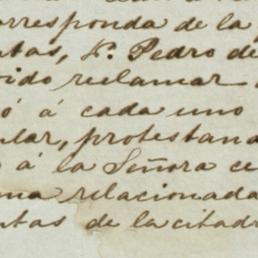 corresponda de la
ntas, Dn. Pedro de
bido reclamar
ó á cada uno
ular, protestand
á la Señora ce
una relacionada
ntas de la citad